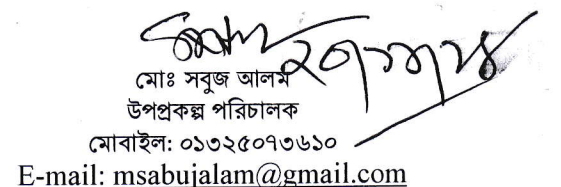 মোঃ সবুজ আলম
উপপ্রকল্প পরিচালক
মোবাইল: ০১৩২৫০৭৩৬১০
E-mail: msabujalam@gmail.com